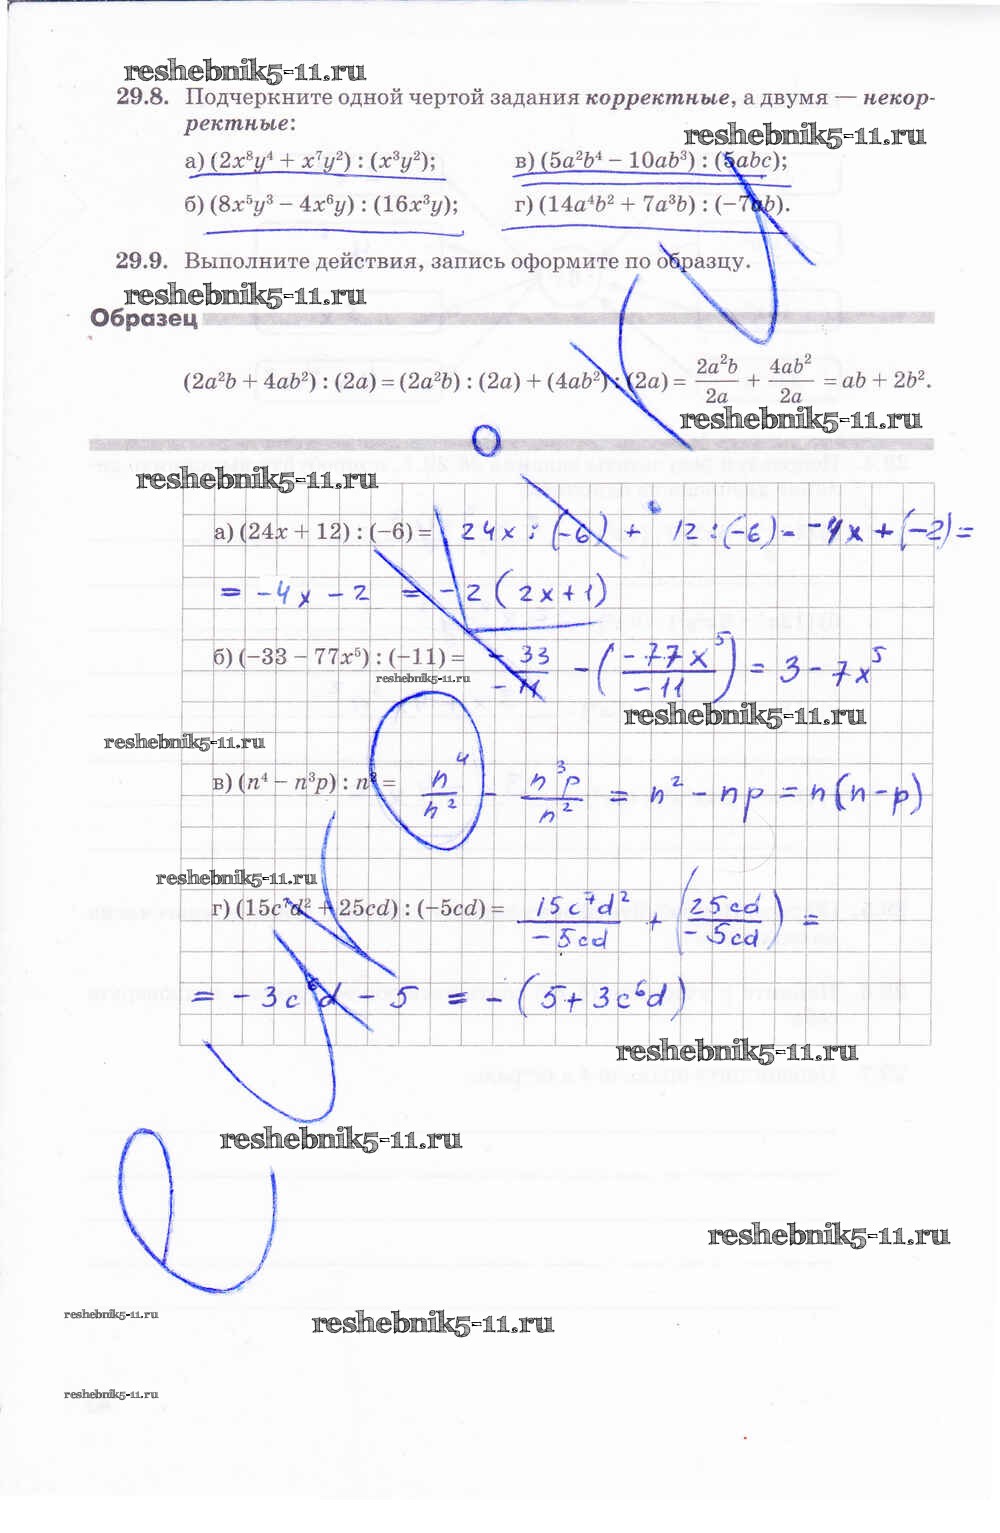 reshebnik5-11.ru
29.8. Подчеркните одной чертой задания корректные, а двумя — некор-
ректные:
reshebnik5-11.ru
а) (2x⁸y⁴ + x⁷y²) : (x³y²); в) (5a²b⁴ − 10ab³) : (5abc);
б) (8x⁵y³ − 4x⁶y) : (16x³y); г) (14a⁴b² + 7a³b) : (−7ab).
29.9. Выполните действия, запись оформите по образцу.
reshebnik5-11.ru
Образец
(2a²b + 4ab²) : (2a) = (2a²b) : (2a) + (4ab²) : (2a) = 2a²b/2a + 4ab²/2a = ab + 2b².
reshebnik5-11.ru
reshebnik5-11.ru
а) (24x + 12) : (−6) = 24x : (−6) + 12 : (−6) = −4x + (−2) =
= −4x − 2 = −2 (2x+1)
б) (−33 − 77x⁵) : (−11) = −33/−11 − (−77x⁵/−11) = 3 − 7x⁵
reshebnik5-11.ru
reshebnik5-11.ru
reshebnik5-11.ru
в) (n⁴ − n³p) : n² = n⁴/n² − n³p/n² = n² − np = n(n−p)
reshebnik5-11.ru
г) (15c⁷d² + 25cd) : (−5cd) = 15c⁷d²/−5cd + (25cd/−5cd) =
= −3c⁶d − 5 = −(5+3c⁶d)
reshebnik5-11.ru
reshebnik5-11.ru
reshebnik5-11.ru
reshebnik5-11.ru
reshebnik5-11.ru
reshebnik5-11.ru